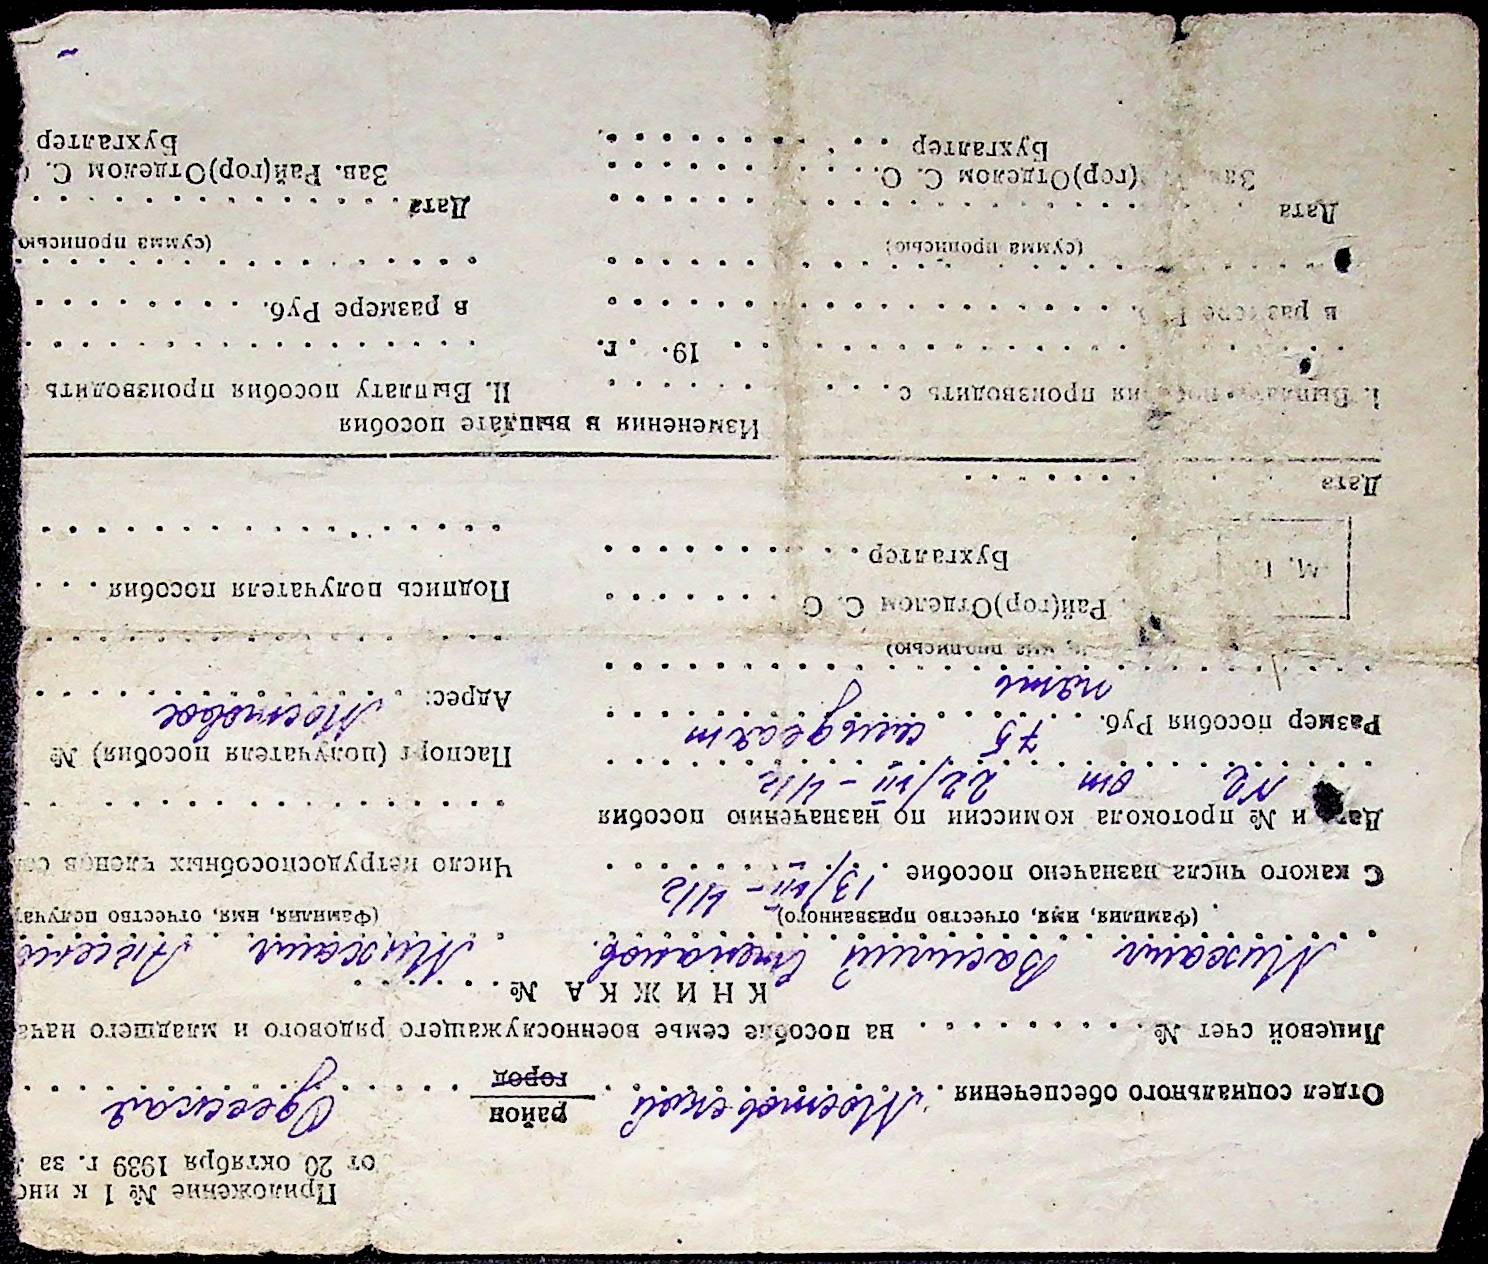 Приложение № 1 к инс
от 20 октября 1939 г. за
Отдел социального обеспечения Мостовской район город Одесская
Лицевой счет № на пособие семье военнослужащего рядового и младшего нача
КНИЖКА №
Михаил Василий Степанов. Михаил
(фамилия, имя, отчество призванного) (Фамилия, имя, отчество получа
С какого числа назначено пособие 13/VII-41г Число нетрудоспособных членов сем
Дата и № протокола комиссии по назначению пособия
№ 2 от 22/VII-41г Паспорт (получателя пособия) №
Размер пособия Руб. 75 семьдесят Адрес: Мостовое
пять
прописью)
Рай(гор)Отделом С. О Подпись получателя пособия
М. П. Бухгалтер
Дата
Изменения в выплате пособия
I. Выплату пособия производить с II. Выплату пособия производить
19 . г.
в размере Руб. в размере Руб.
(сумма прописью) (сумма прописью
Дата Дата
Зав. (гор)Отделом С. О. Зав. Рай(гор)Отделом С. О
Бухгалтер Бухгалтер